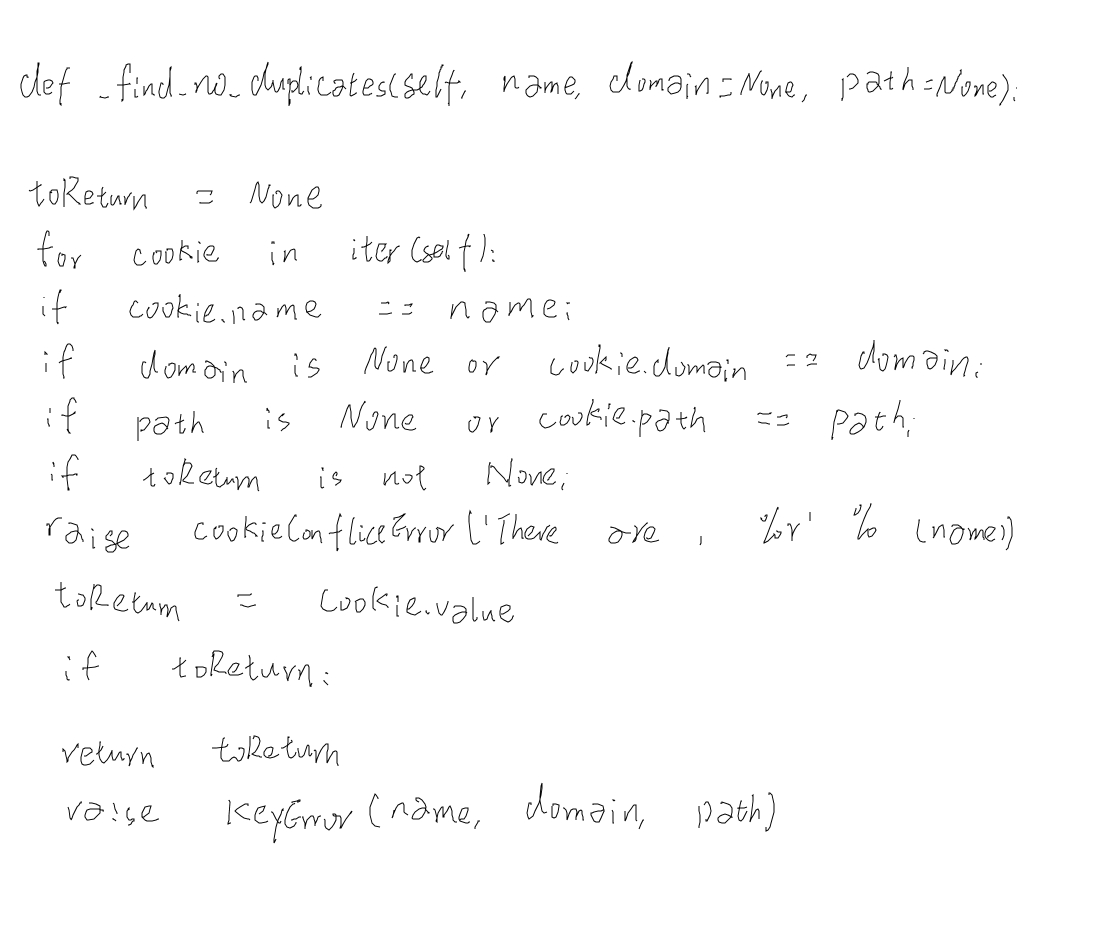 def _find_no_duplicates(self, name, domain=None, path=None):
toReturn = None
for cookie in iter(self):
if cookie.name == name:
if domain is None or cookie.domain == domain:
if path is None or cookie.path == path:
if toReturn is not None:
raise cookieConflictError('There are , %r' % (name))
toReturn = cookie.value
if toReturn:
return toReturn
raise KeyError(name, domain, path)